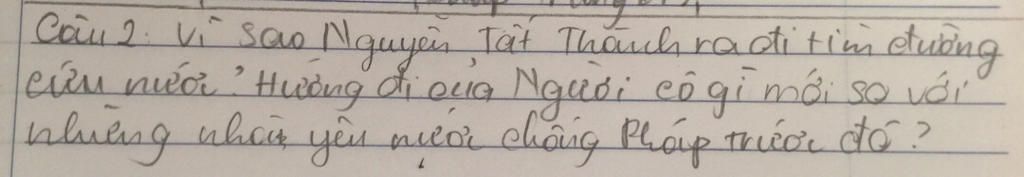 Câu 2: Vì sao Nguyễn Tất Thành ra đi tìm đường
cứu nước? Hướng đi của Người có gì mới so với
những nhà yêu nước chống Pháp trước đó?